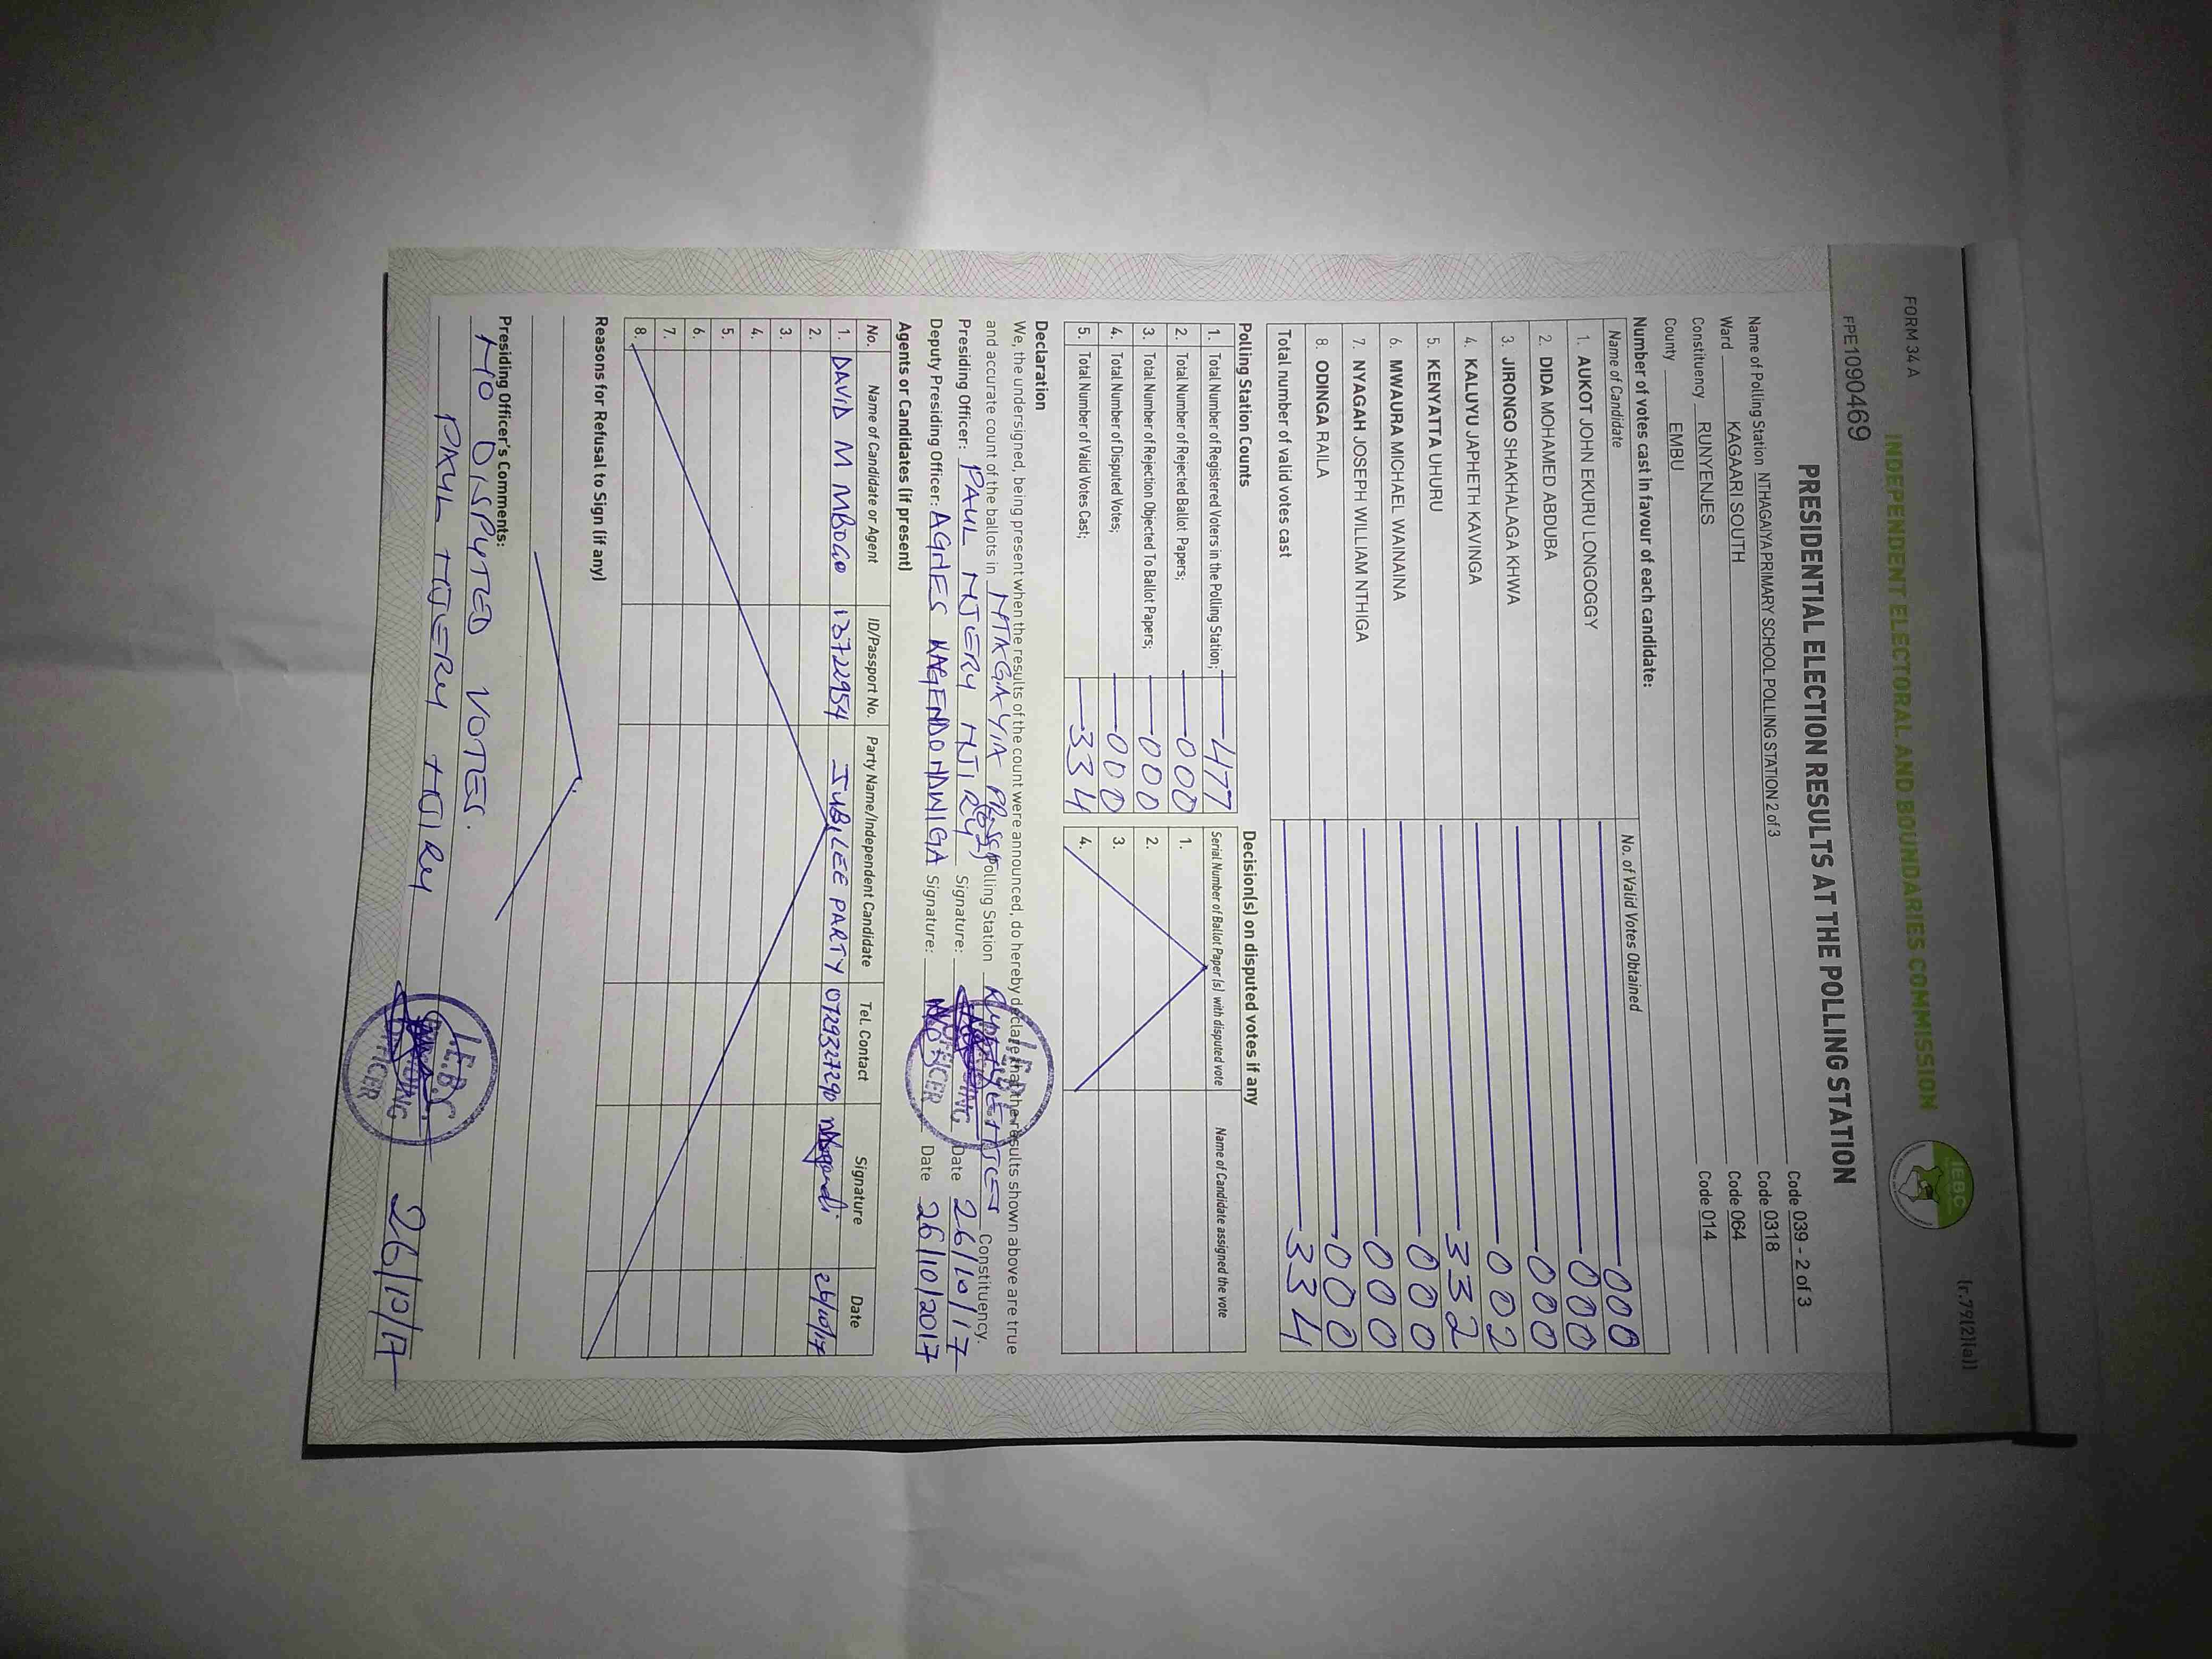 FORM 34 A
(r.79(2)(a))
INDEPENDENT ELECTORAL AND BOUNDARIES COMMISSION
IEBC
FPE1090469
PRESIDENTIAL ELECTION RESULTS AT THE POLLING STATION
Name of Polling Station NTHAGAIYA PRIMARY SCHOOL POLLING STATION 2 of 3 Code 039 - 2 of 3
Ward KAGAARI SOUTH Code 0318
Constituency RUNYENJES Code 064
County EMBU Code 014
Number of votes cast in favour of each candidate:
Name of Candidate No. of Valid Votes Obtained
1. AUKOT JOHN EKURU LONGOGGY 000
2. DIDA MOHAMED ABDUBA 000
3. JIRONGO SHAKHALAGA KHWA 000
4. KALUYU JAPHETH KAVINGA 002
5. KENYATTA UHURU 332
6. MWAURA MICHAEL WAINAINA 000
7. NYAGAH JOSEPH WILLIAM NTHIGA 000
8. ODINGA RAILA 000
Total number of valid votes cast 334
Polling Station Counts
1. Total Number of Registered Voters in the Polling Station; 477
2. Total Number of Rejected Ballot Papers; 000
3. Total Number of Rejection Objected To Ballot Papers; 000
4. Total Number of Disputed Votes; 000
5. Total Number of Valid Votes Cast; 334
Decision(s) on disputed votes if any
Serial Number of Ballot Paper(s) with disputed vote Name of Candidate assigned the vote
1.
2.
3.
4.
Declaration
We, the undersigned, being present when the results of the count were announced, do hereby declare that the results shown above are true
and accurate count of the ballots in NTAGAYIA Polling Station Constituency.
Presiding Officer: PAUL NJERY NJIRY Signature: Date 26/10/17
Deputy Presiding Officer: AGNES KAGENDO NDWIGA Signature: Date 26/10/2017
Agents or Candidates (if present)
No. Name of Candidate or Agent ID/Passport No. Party Name/Independent Candidate Tel. Contact Signature Date
1. DAVID M MBOGO 13722954 JUBILEE PARTY 0729327290 26/10/17
2.
3.
4.
5.
6.
7.
8.
Reasons for Refusal to Sign (if any)
Presiding Officer's Comments:
NO DISPYTED VOTES.
PAUL NJERY NJIRY 26/10/17
I.E.B.C
OFFICER